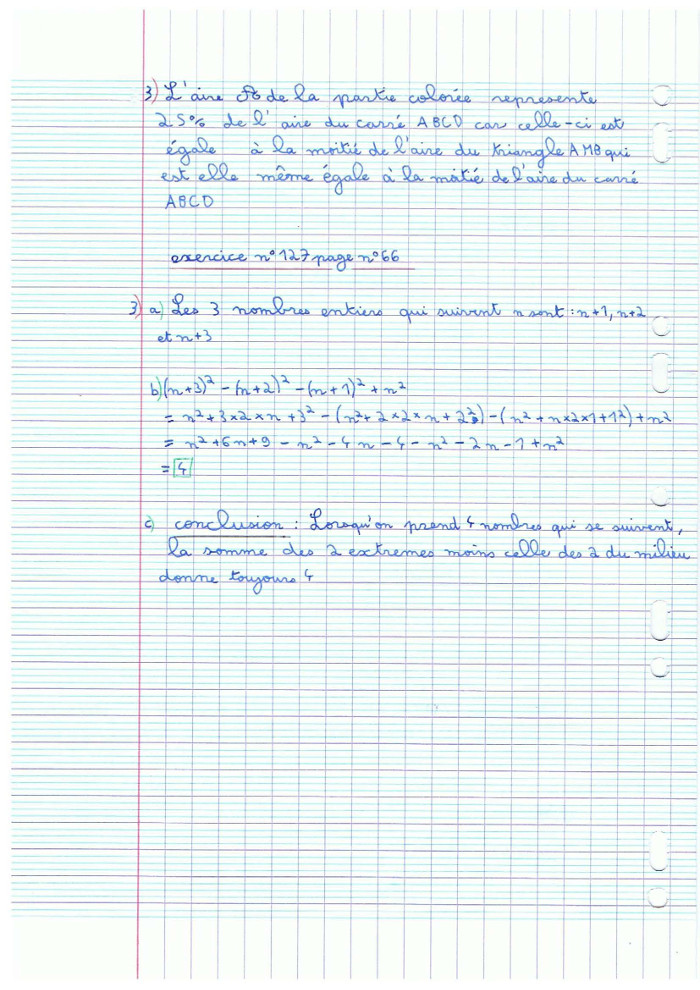 3) L'aire A de la partie colorée represente
25% de l'aire du carré ABCD car celle-ci est
égale à la moitié de l'aire du triangle AMB qui
est elle même égale à la moitié de l'aire du carré
ABCD
exercice n°127 page n°66
3) a) Les 3 nombres entiers qui suivent n sont : n+1, n+2
et n+3
b) (n+3)² - (n+2)² - (n+1)² + n²
= n² + 3×2×n + 3² - (n² + 2×2×n + 2²) - (n² + n×2×1 + 1²) + n²
= n² + 6n + 9 - n² - 4n - 4 - n² - 2n - 1 + n²
= 4
c) conclusion : Lorsqu'on prend 4 nombres qui se suivent,
la somme des 2 extremes moins celle des 2 du milieu
donne toujours 4